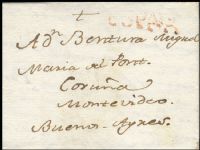 ESPAÑA
A Dn. Bentura Miguel
Maria del Pont.
Coruña
Montevideo.
Buenos-Ayres.